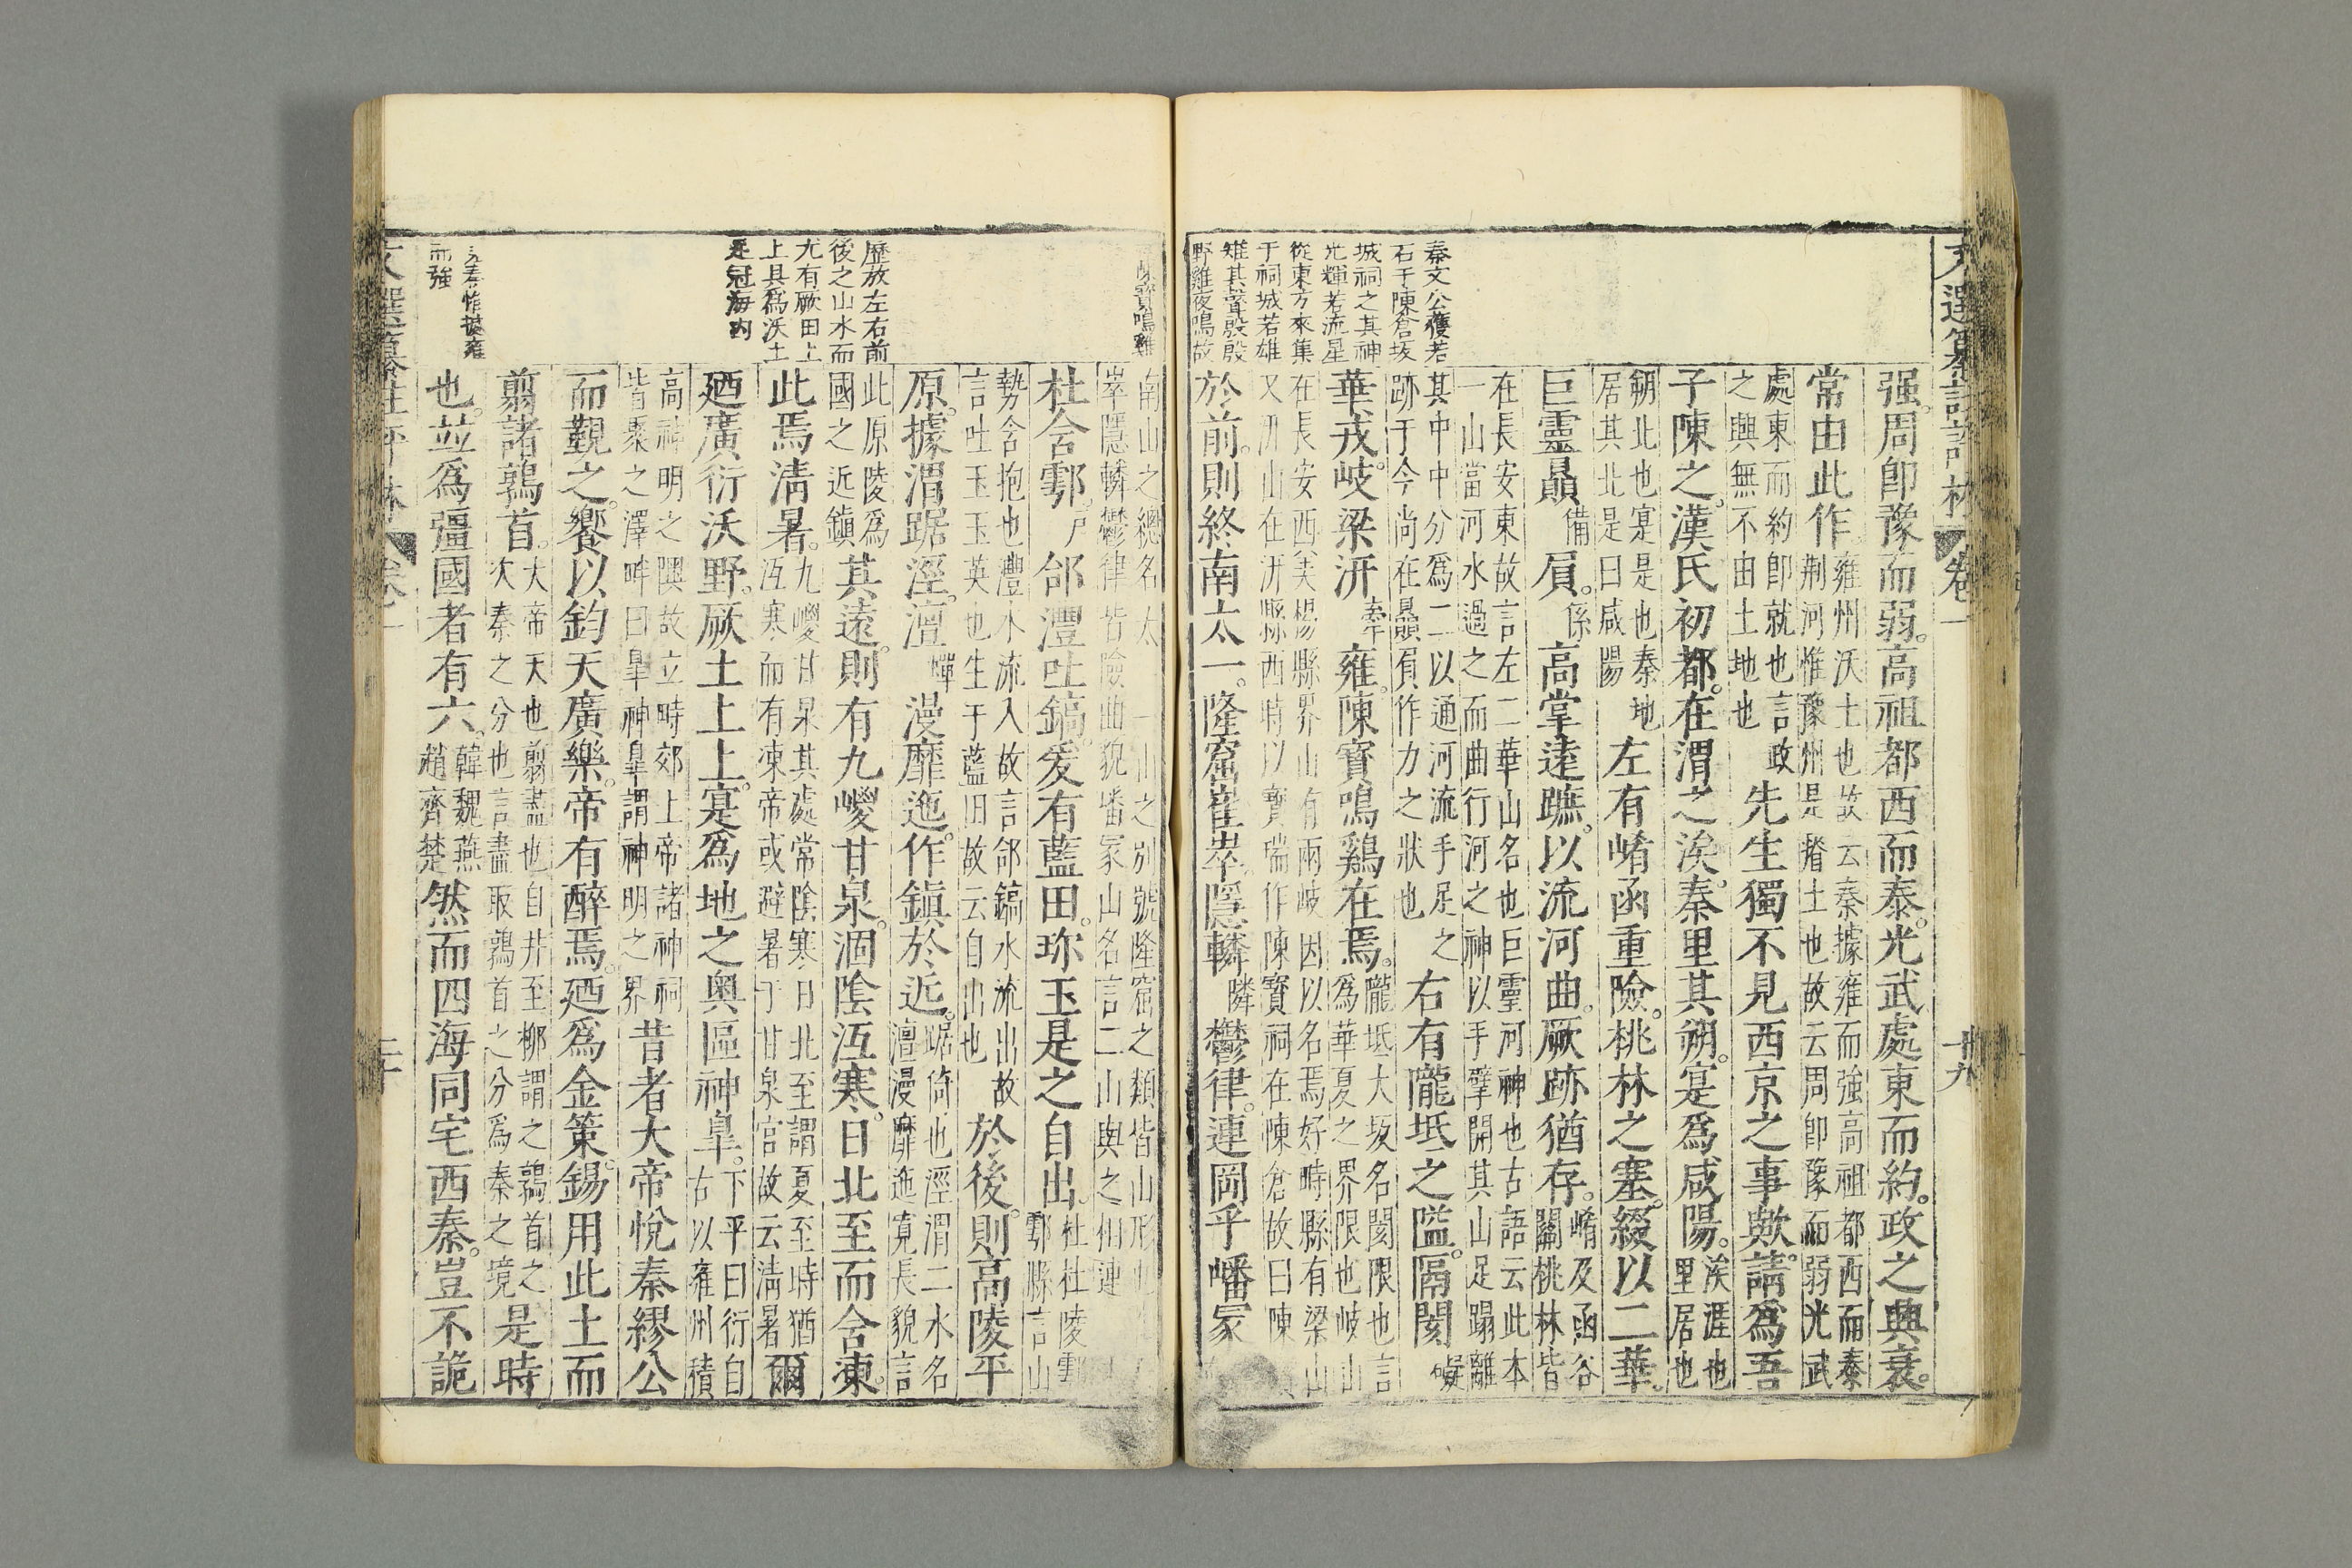 文選纂註評林 卷一 十九
秦文公獲若
石于陳倉坂
城祠之其神
光輝若流星
從東方來集
于祠城若雄
雉其聲殷殷
野雞夜鳴故
强。周卽豫而弱。高祖都西而泰。光武處東而約。政之興衰。
常由此作。雍州沃土也故云秦據雍而強高祖都西而秦荆河惟豫州是瘠土也故云周卽豫而弱光武
處東而約卽就也言政之興無不由土地也先生獨不見西京之事歟。請爲吾
子陳之。漢氏初都。在渭之涘。秦里其朔。寔爲咸陽。涘涯也里居也
朔北也寔是也秦地居其北是曰咸陽左有崤函重險。桃林之塞。綴以二華。
巨靈贔備屓。係高掌遠蹠。以流河曲。厥跡猶存。崤及函谷關桃林皆
在長安東故言左二華山名也巨靈河神也古語云此本一山當河水過之而曲行河之神以手擘開其山足蹋離
其中中分爲二以通河流手足之跡于今尚在贔屓作力之狀也右有隴坻之隘。隔閡礙
華戎。岐梁汧牽雍。陳寶鳴鷄在焉。隴坻大坂名閡限也言爲華夏之界限也岐山
在長安西美楊縣界山有兩岐因以名焉好畤縣有梁山又汧山在汧縣西時以寶瑞作陳寳祠在陳倉故曰陳
於前。則終南太一。隆窟崔崒。隱轔隣鬱律。連岡乎嶓冢
陳寶鳴雞
歷放左右前
後之山水而
尤有厥田上
上具爲沃土
是冠海内
秦惟據雍
而強
南山之總名太一山之別號隆窟之類皆山形崒隱轔鬱律皆險曲貌嶓冢山名言二山與之相連
杜含鄠。戸郃灃吐鎬。爰有藍田。珎玉是之自出。杜杜陵鄠鄠縣言山
勢含抱也灃水流入故言郃鎬水流出故言吐玉玉英也生于藍田故云自出也於後。則高陵平
原。據渭踞涇。澶憚漫靡迤。作鎮於近。踞倚也涇渭二水名澶漫靡迤寬長貌言
此原陵爲國之近鎮其遠。則有九嵕甘泉。涸陰沍寒。日北至而含凍。
此焉淸暑。九嵕甘泉其處常陰寒日北至謂夏至時猶沍寒而有凍帝或避暑于甘泉宫故云淸暑爾
廼廣衍沃野。厥土上上。寔爲地之奥區神臯。下平曰衍自古以雍州積
高神明之隩故立畤郊上帝諸神祠皆聚之澤畔曰臯神臯謂神明之界昔者大帝悅秦繆公
而觐之。饗以鈞天廣樂。帝有醉焉。廼爲金策。錫用此土而
翦諸鶉首。大帝天也翦盡也自井至柳謂之鶉首之次秦之分也言盡取鶉首之分爲秦之境是時
也。並爲彊國者有六。韓魏燕趙齊楚然而四海同宅西秦。豈不詭
文選纂註評林 卷一 二十